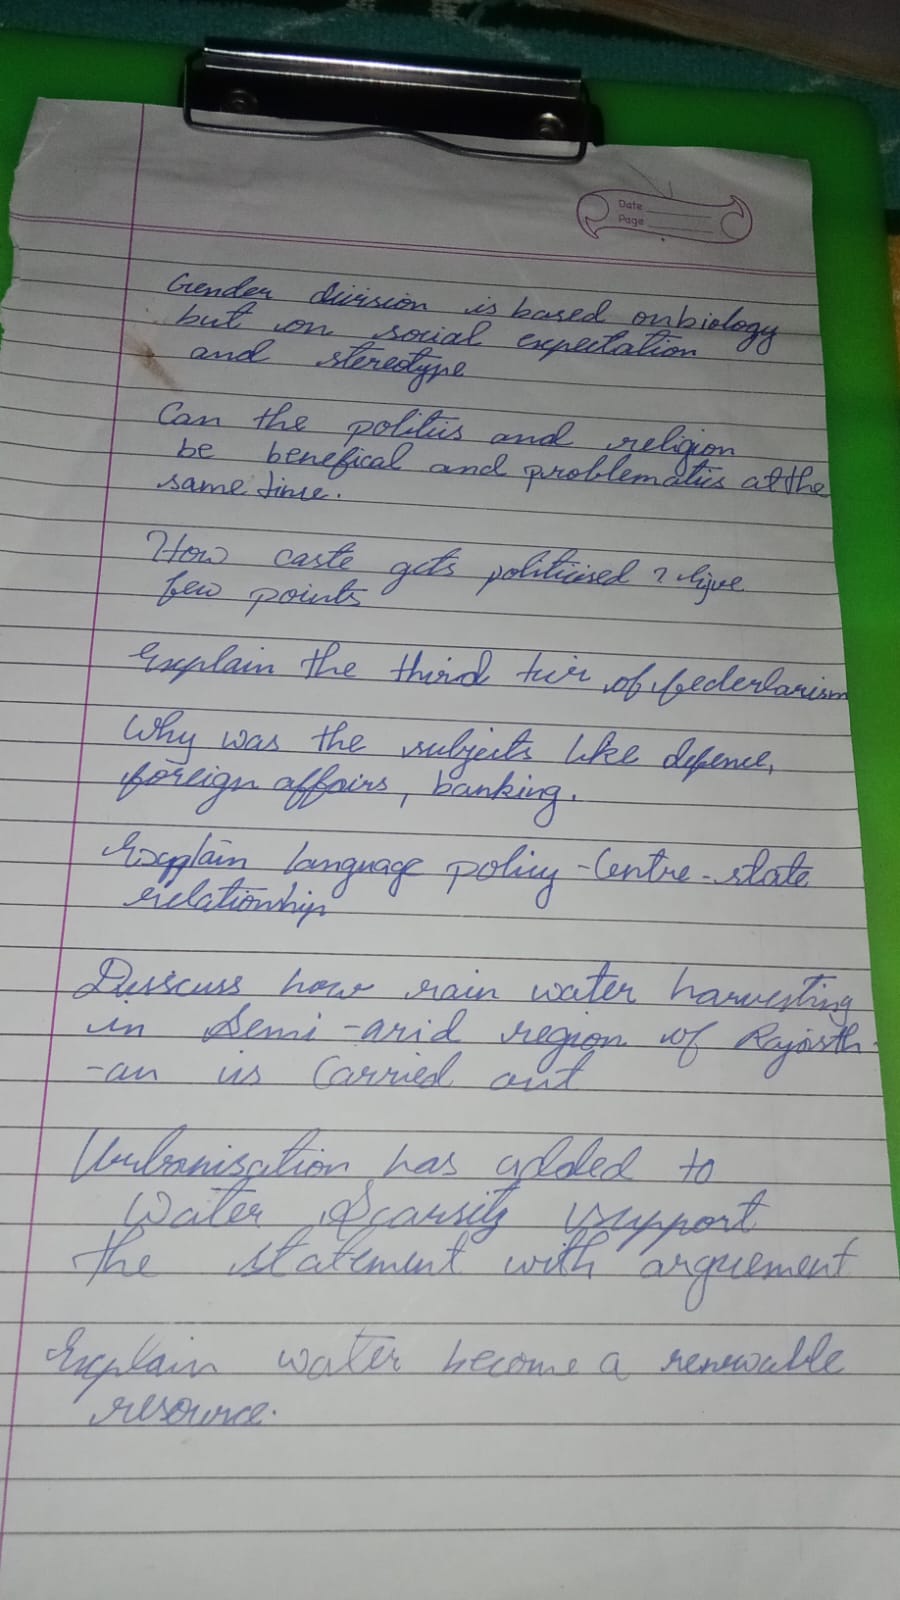 Date
Page
Gender division is based on biology
but on social expectation
and stereotype
Can the politiis and religion
be benefical and problematics at the
same time.
How caste gets politicised ? Give
few points
Explain the third tier of federlarism
Why was the subjects like defence,
foreign affairs, banking.
Explain language policy - Centre - state
relationship
Disscuss how rain water harvesting
in Semi - arid region of Rajasth-
-an is Carried out
Urbanisation has added to
Water Scarsity support
the statement with arguement
Explain water become a renewable
resource.